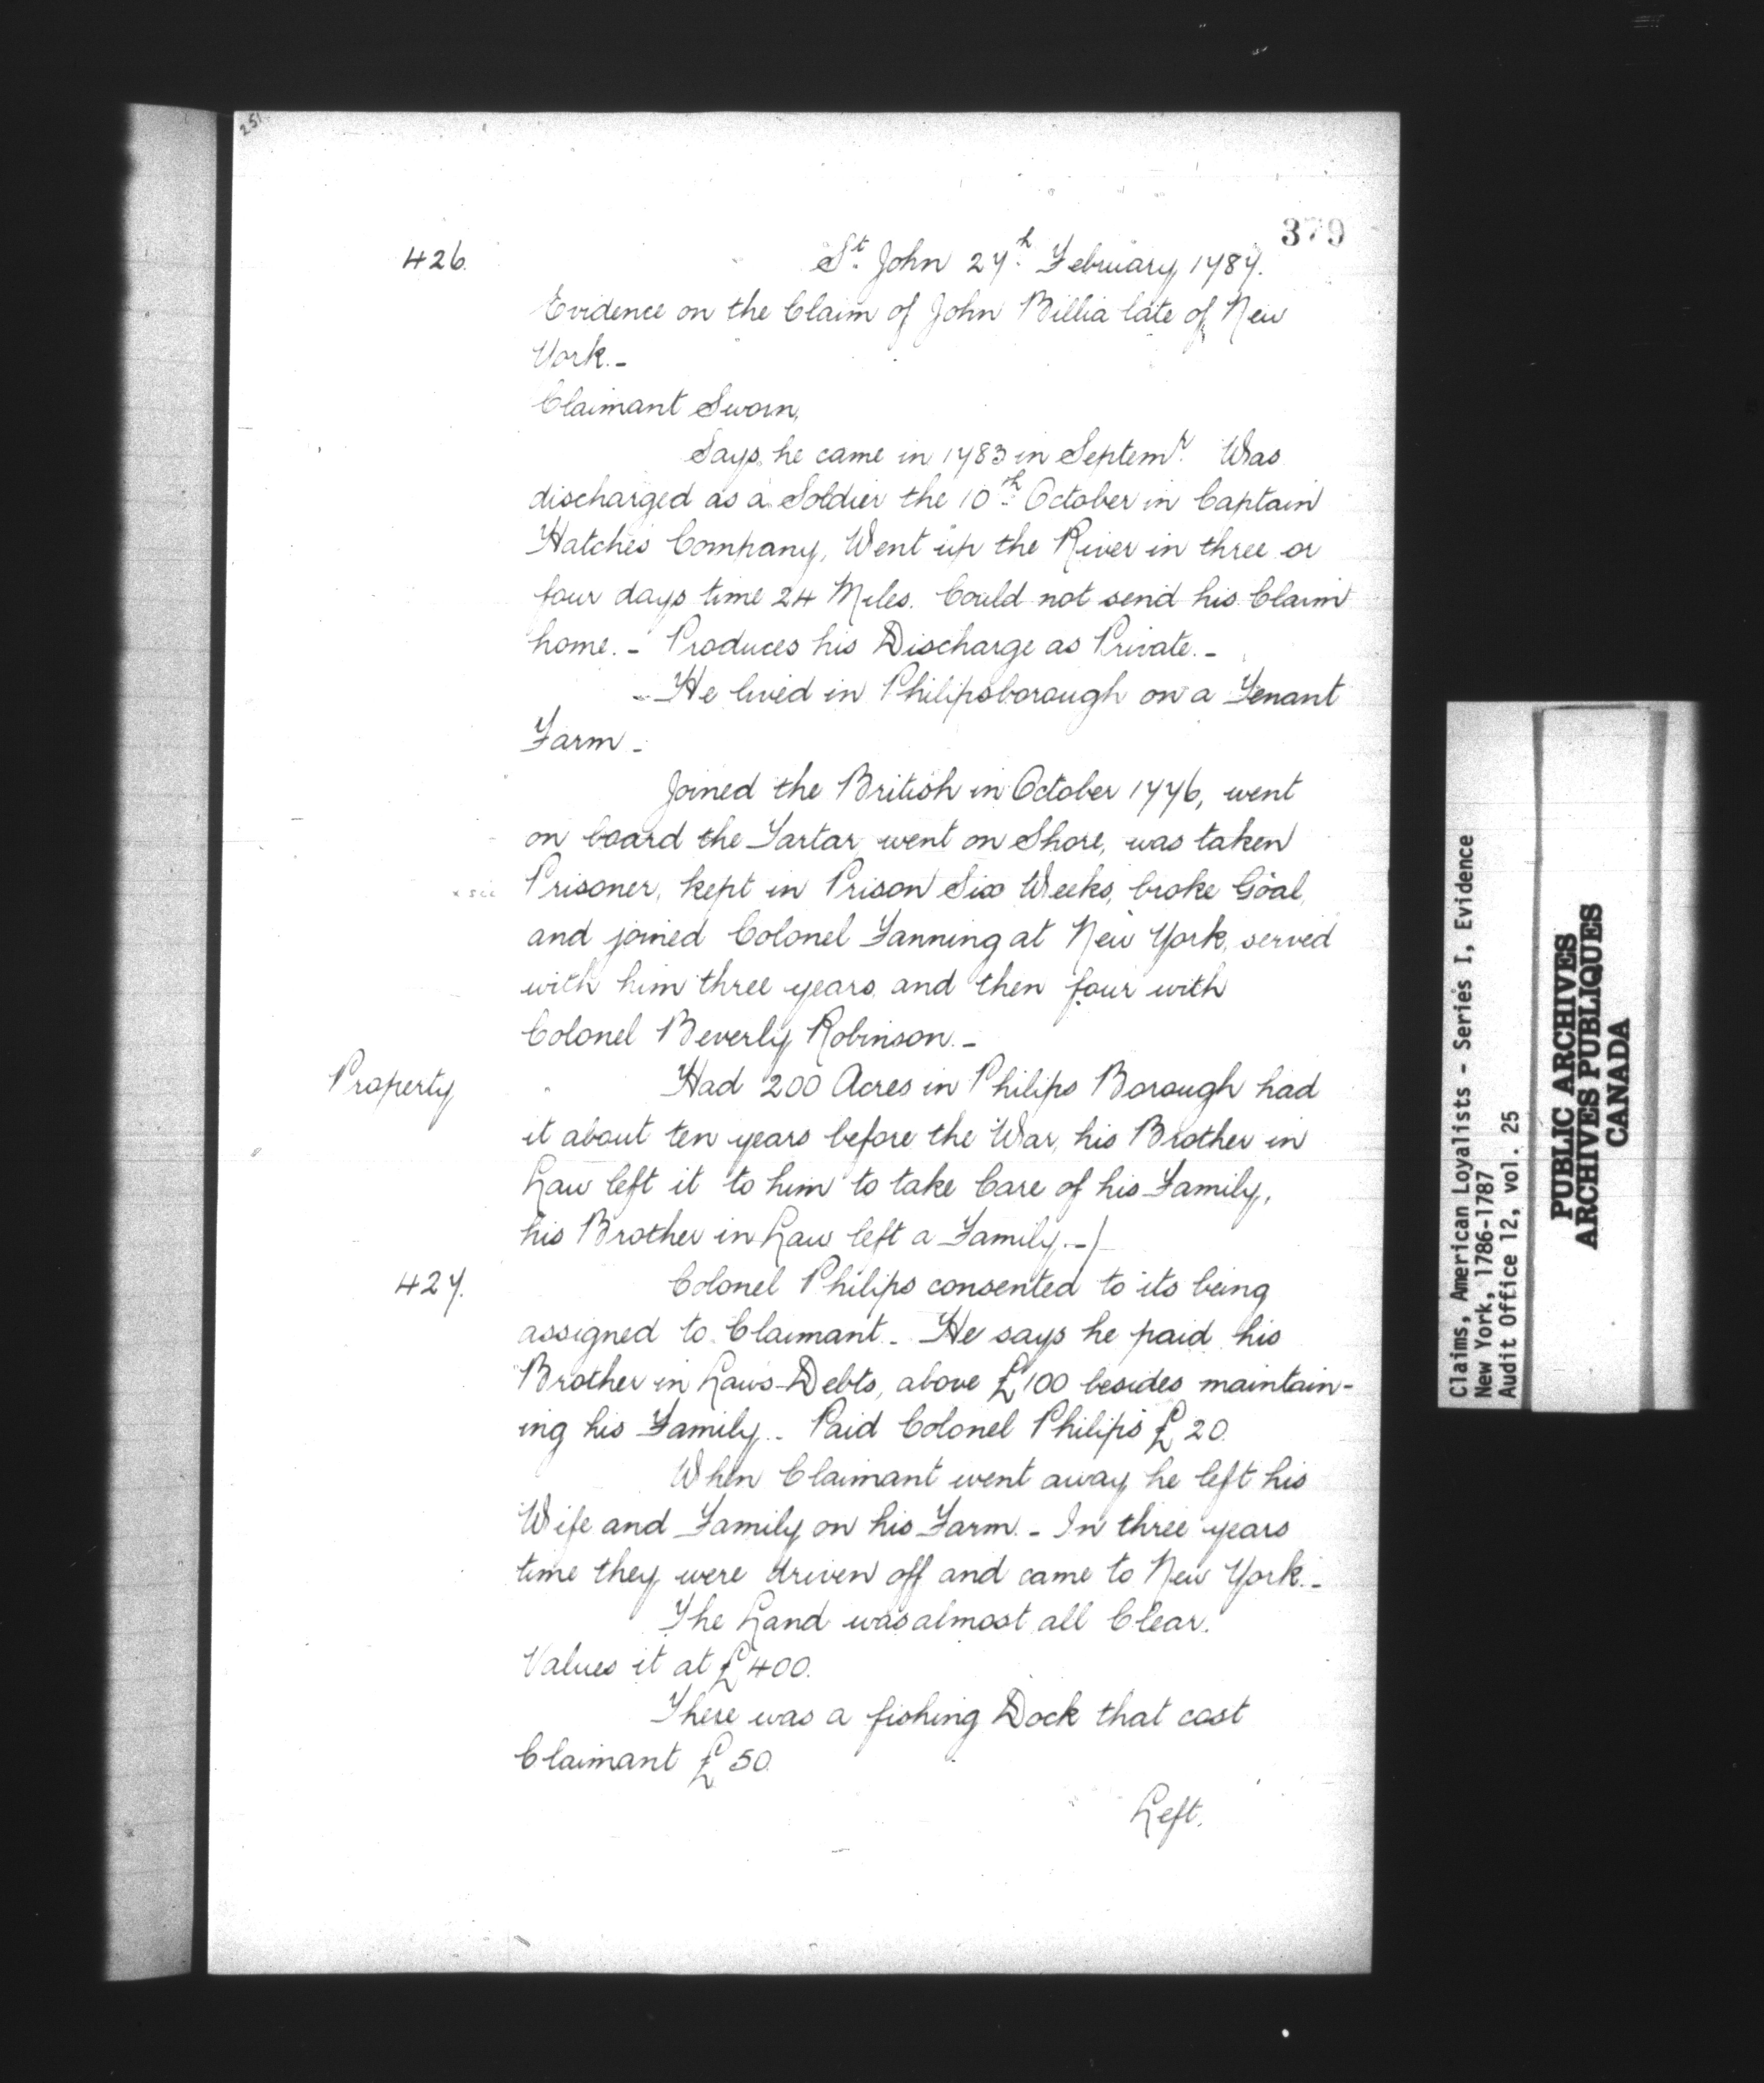 251
379
426. St. John 27th. February 1787.
Evidence on the Claim of John Billia late of New
York.-
Claimant Sworn,
Says he came in 1783 in Septemr. Was
discharged as a Soldier the 10th. October in Captain
Hatches Company, Went up the River in three or
four days time 24 Miles. Could not send his Claim
home. - Produces his Discharge as Private.-
He lived in Philipsborough on a Tenant
Farm -
Joined the British in October 1776, went
on board the Tartar went on Shore, was taken
x sic Prisoner, kept in Prison Six Weeks, broke Goal,
and joined Colonel Fanning at New York, served
with him three years and then four with
Colonel Beverly Robinson.-
Property Had 200 Acres in Philips Borough had
it about ten years before the War, his Brother in
Law left it to him to take Care of his Family,
his Brother in Law left a Family.-/
427. Colonel Philips consented to its being
assigned to Claimant.- He says he paid his
Brother in Laws Debts, above £100 besides maintain-
ing his Family.- Paid Colonel Philips £20.
When Claimant went away he left his
Wife and Family on his Farm.- In three years
time they were driven off and came to New York.-
The Land was almost all Clear.
Values it at £400.
There was a fishing Dock that cost
Claimant £50.
Left.
Claims, American Loyalists - Series I, Evidence
New York, 1786-1787
Audit Office 12, vol. 25
PUBLIC ARCHIVES
ARCHIVES PUBLIQUES
CANADA